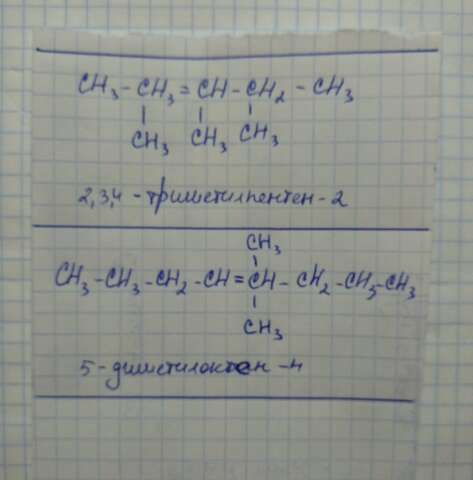 CH3 - CH3 = CH - CH2 - CH3
CH3 CH3 CH3
2,3,4 - триметилпентен - 2
CH3
CH3 - CH3 - CH2 - CH = CH - CH2 - CH5 - CH3
CH3
5 - диметилоктен - 4